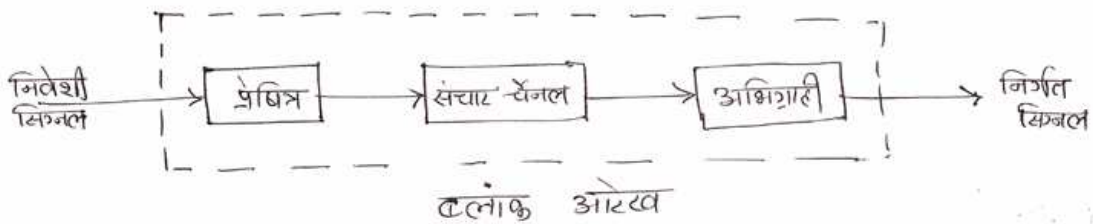 निवेशी
सिग्नल
प्रेषित्र
संचार चैनल
अभिग्राही
निर्गत
सिग्नल
ब्लांक आरेख